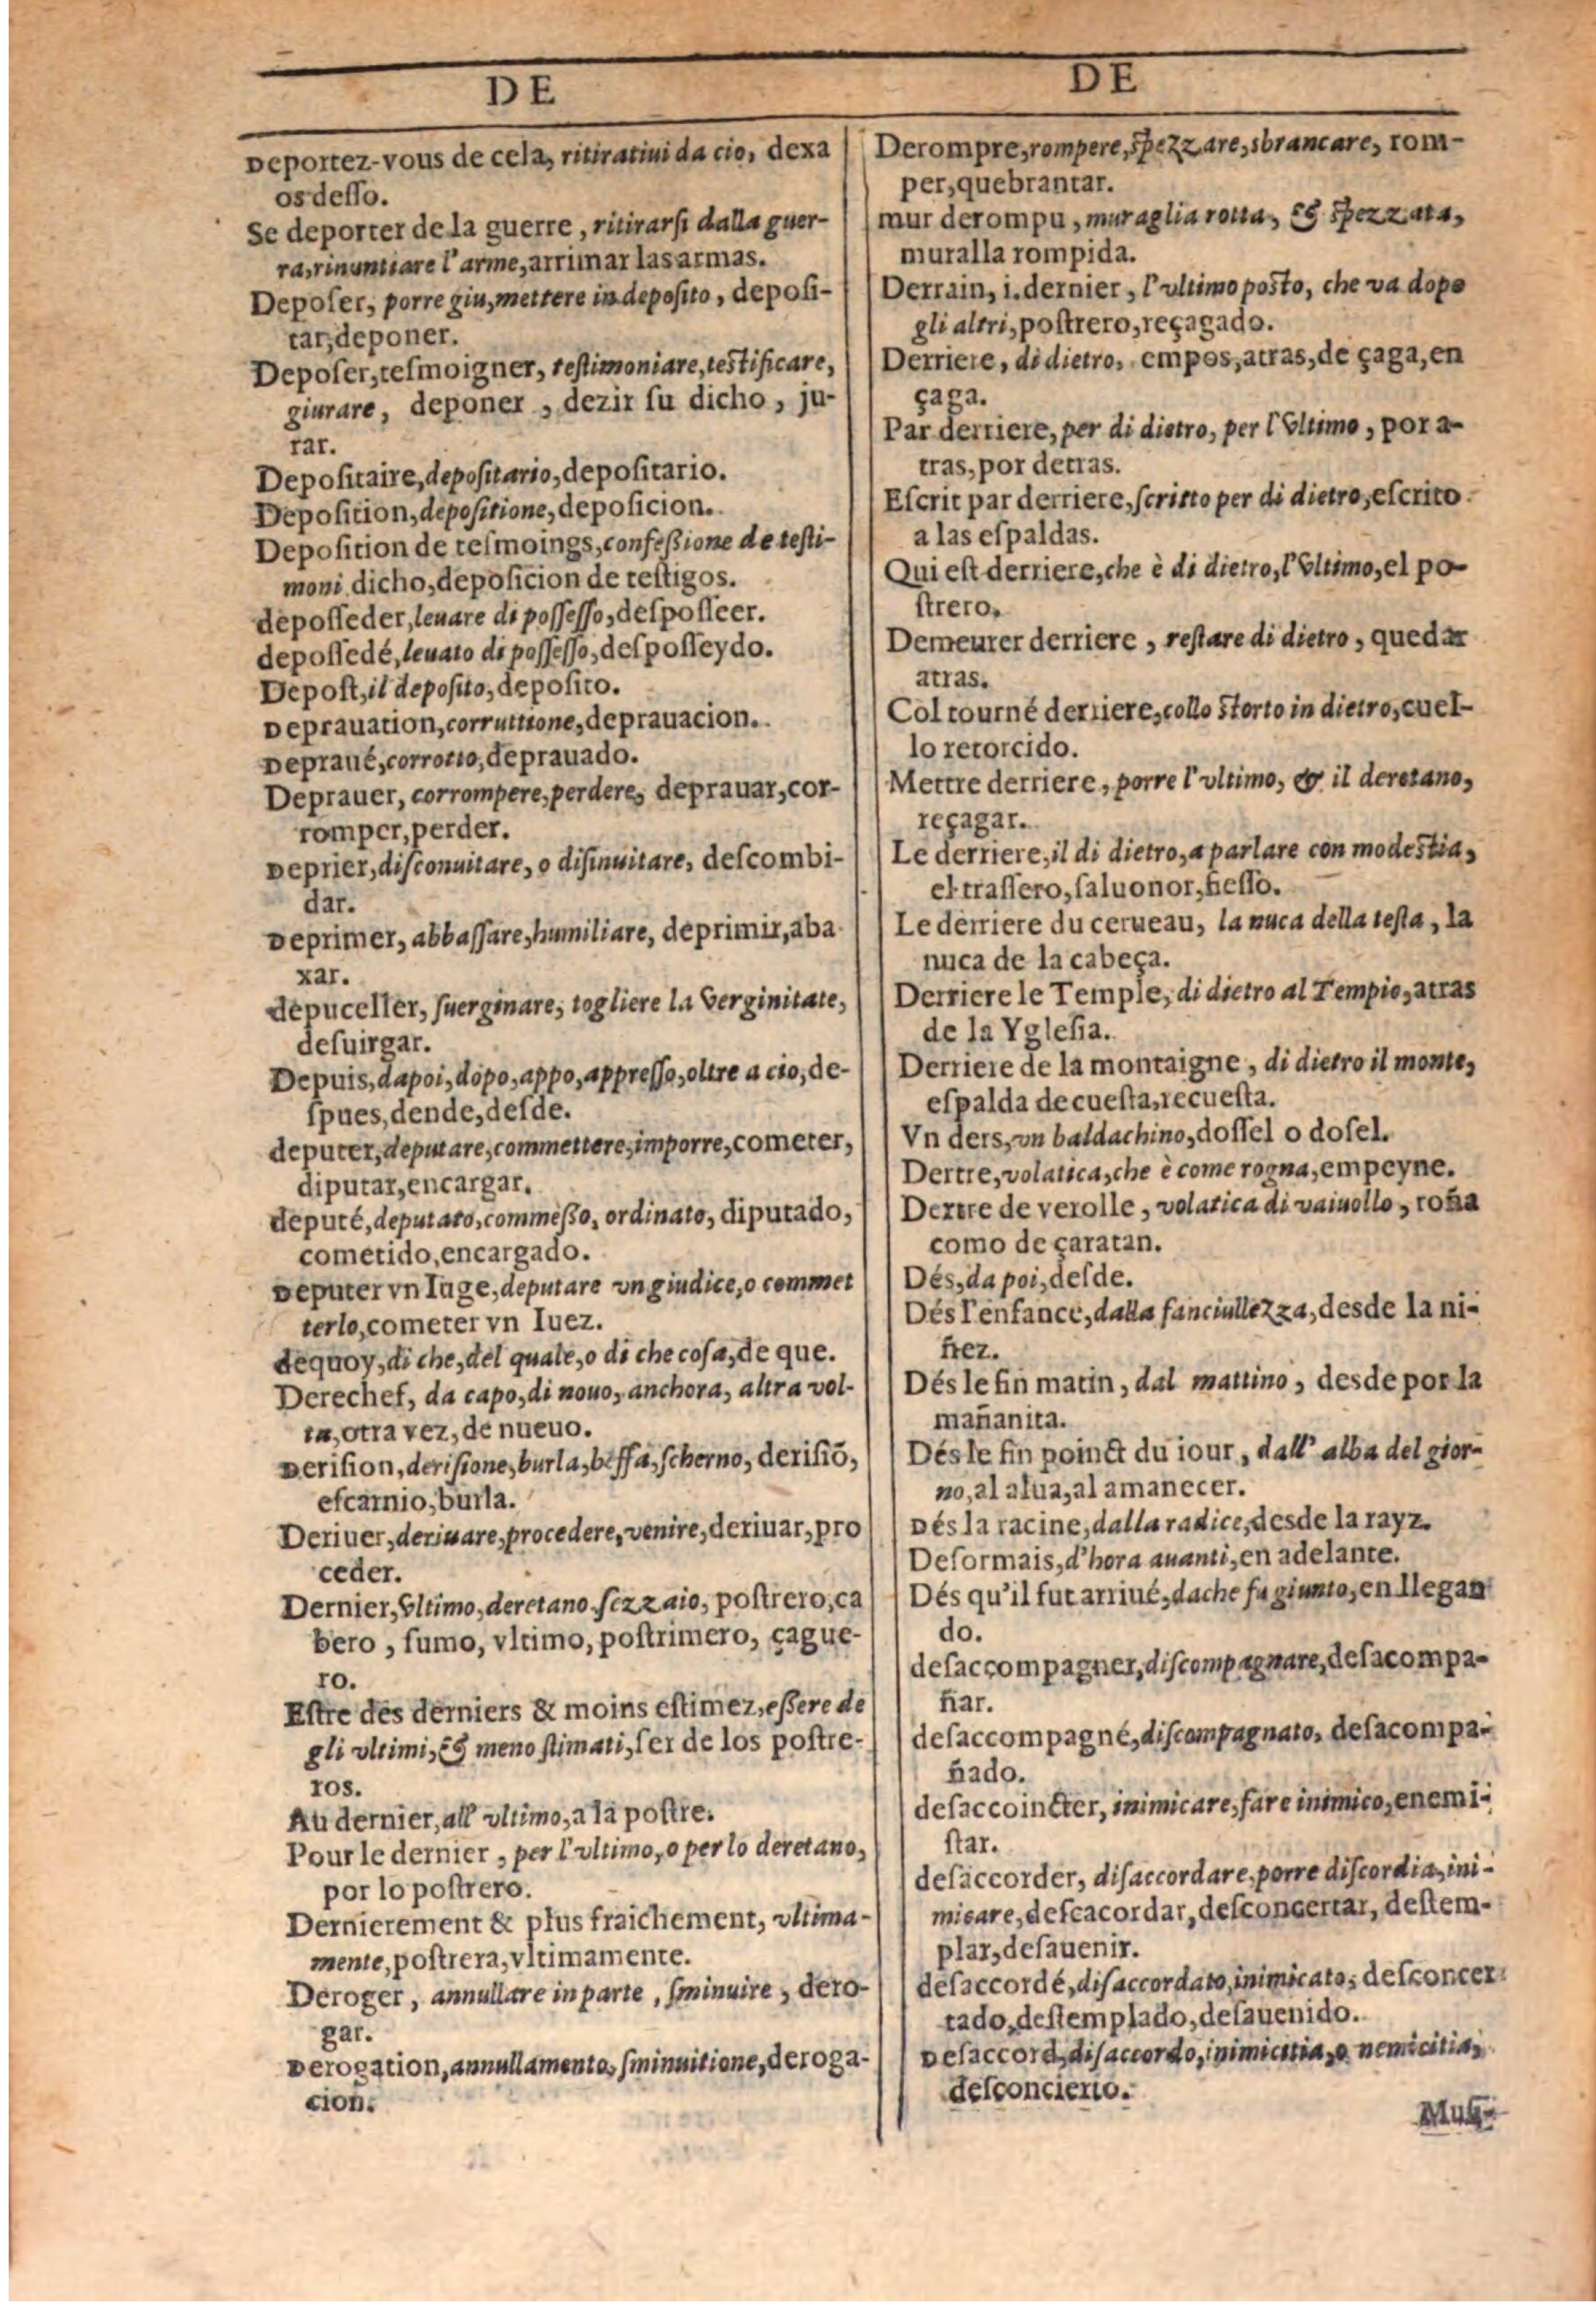 DE
Deportez-vous de cela, ritiratiui da cio, dexa
os desso.
Se deporter de la guerre, ritirarſi dalla guer-
ra, rinuntiare l'arme, arrimar las armas.
Depoſer, porre giu, mettere in depoſito, depoſi-
tar, deponer.
Depoſer, teſmoigner, teſtimoniare, teſtificare,
giurare, deponer, dezir ſu dicho, ju-
rar.
Depoſitaire, depoſitario, depoſitario.
Depoſition, depoſitione, depoſicion.
Depoſition de teſmoings, confeßione de teſti-
moni dicho, depoſicion de teſtigos.
depoſſeder, leuare di poſſeſſo, deſpoſſeer.
depoſſedé, leuato di poſſeſſo, deſpoſſeydo.
Depoſt, il depoſito, depoſito.
Deprauation, corruttione, deprauacion.
Deprauê, corrotto, deprauado.
Deprauer, corrompere, perdere, deprauar, cor-
romper, perder.
Deprier, diſconuitare, o diſinuitare, deſcombi-
dar.
Deprimer, abbaſſare, humiliare, deprimir, aba
xar.
depuceller, ſuerginare, togliere la verginitate,
deſuirgar.
Depuis, dapoi, dopo, appo, appreſſo, oltre a cio, de-
ſpues, dende, deſde.
deputer, deputare, commettere, imporre, cometer,
diputar, encargar.
deputé, deputato, commeßo, ordinato, diputado,
cometido, encargado.
Deputer vn Iuge, deputare vn giudice, o commet
terlo, cometer vn Iuez.
dequoy, di che, del quale, o di che coſa, de que.
Derechef, da capo, di nouo, anchora, altra vol-
ta, otra vez, de nueuo.
Deriſion, deriſione, burla, beffa, ſcherno, deriſiõ,
eſcarnio, burla.
Deriuer, deriuare, procedere, venire, deriuar, pro
ceder.
Dernier, vltimo, deretano, ſezzaio, poſtrero, ca
bero, ſumo, vltimo, poſtrimero, çague-
ro.
Eſtre des derniers & moins eſtimez, eßere de
gli vltimi, & meno ſtimati, ſer de los poſtre-
ros.
Au dernier, all' vltimo, a la poſtre.
Pour le dernier, per l'vltimo, o per lo deretano,
por lo poſtrero.
Dernierement & plus fraichement, vltima-
mente, poſtrera, vltimamente.
Deroger, annullare in parte, ſminuire, dero-
gar.
Derogation, annullamento, ſminuitione, deroga-
cion.
DE
Derompre, rompere, ſpezzare, sbrancare, rom-
per, quebrantar.
mur derompu, muraglia rotta, & ſpezzata,
muralla rompida.
Derrain, i. dernier, l'vltimo poſto, che va dopo
gli altri, poſtrero, reçagado.
Derriere, di dietro, empos, atras, de çaga, en
çaga.
Par derriere, per di dietro, per l'vltimo, por a-
tras, por detras.
Eſcrit par derriere, ſcritto per di dietro, eſcrito
a las eſpaldas.
Qui eſt derriere, che è di dietro, l'vltimo, el po-
ſtrero.
Demeurer derriere, reſtare di dietro, quedar
atras.
Col tourné derriere, collo ſtorto in dietro, cuel-
lo retorcido.
Mettre derriere, porre l'vltimo, & il deretano,
reçagar.
Le derriere, il di dietro, a parlare con modeſtia,
el traſſero, ſaluonor, ſieſſo.
Le derriere du cerueau, la nuca della teſta, la
nuca de la cabeça.
Derriere le Temple, di dietro al Tempio, atras
de la Ygleſia.
Derriere de la montaigne, di dietro il monte,
eſpalda de cueſta, recueſta.
Vn ders, vn baldachino, doſſel o doſel.
Dertre, volatica, che è come rogna, empeyne.
Dertre de verolle, volatica di vaiuollo, roña
como de çaratan.
Dés, da poi, deſde.
Dés l'enfance, dalla fanciullezza, desde la ni-
ñez.
Dés le fin matin, dal mattino, desde por la
mañanita.
Dés le fin poinct du iour, dall' alba del gior-
no, al alua, al amanecer.
Dés la racine, dalla radice, desde la rayz.
Deſormais, d'hora auanti, en adelante.
Dés qu'il fut arriué, dache fu giunto, en llegan
do.
deſaccompagner, diſcompagnare, deſacompa-
ñar.
deſaccompagné, diſcompagnato, deſacompa-
ñado.
deſaccoincter, inimicare, fare inimico, enemi-
ſtar.
deſaccorder, diſaccordare, porre diſcordia, ini-
micare, deſcacordar, deſconcertar, deſtem-
plar, deſauenir.
deſaccordé, diſaccordato, inimicato, deſconcer
tado, deſtemplado, deſauenido.
Deſaccord, diſaccordo, inimicitia, o nemicitia,
deſconcierto.